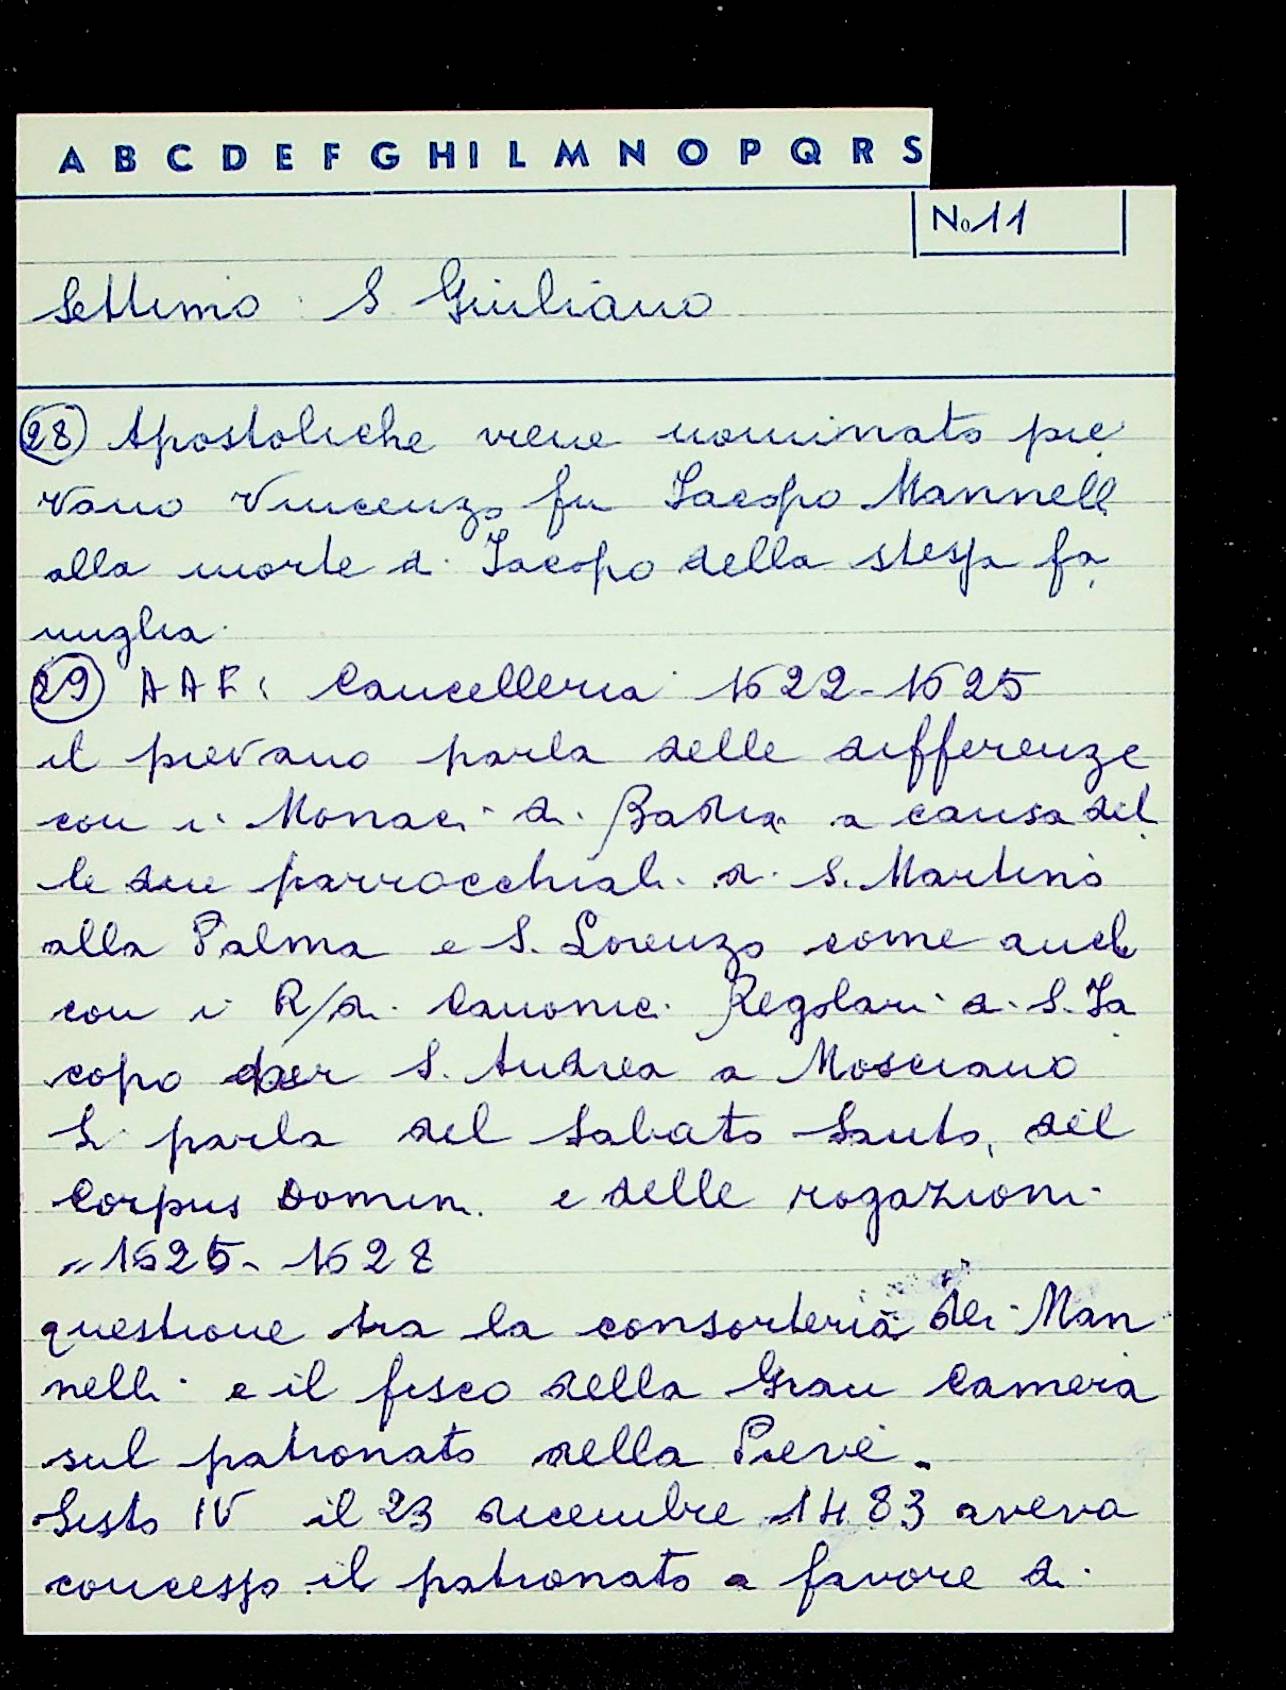 A B C D E F G H I L M N O P Q R S
No 11
Settimo S. Giuliano
28 Apostoliche viene nominato pie
vano Vincenzo fu Iacopo Mannelli
alla morte di Iacopo della stessa fa
miglia.
29 AAF: Cancelleria 1622-1625
il pievano parla delle differenze
con i Monaci di Badia a causa del
le due parrocchiali di S. Martino
alla Palma e S. Lorenzo come anche
con i R/di Canonici Regolari di S. Ia
copo per S. Andrea a Mosciano
Si parla del Sabato Santo, del
Corpus Domini e delle rogazioni
" 1625-1628
questione tra la consorteria dei Man
nelli e il fisco della Gran Camera
sul patronato della Pieve.
Sisto IV il 23 dicembre 1483 aveva
concesso il patronato a favore di